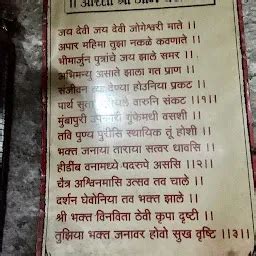 ॥ आरती श्री
जय देवी जय देवी जोगेश्वरी माते ।
अपार महिमा तुझा नकळे कवणाते ॥
भीमार्जुन पुत्रांचे जय झाले समर
अभिमन्यु असाते झाला गत प्राण ॥
सजीवन त्या देण्या होउनिया प्रकट
पार्थ सुता वारुनि संकट ॥१॥
मुंबापुरी गुंफेमधी वसशी ॥
तवि पुण्य पुरीसि स्थायिक तूं होशी ॥
भक्त जनाया ताराया सत्वर धावसि ॥
हीडींब वनामध्ये पदरुपे अससि ॥२॥
चैत्र अश्विनमासि उत्सव तव चाले ।
दर्शन घेवोनिया तव भक्त झाले ॥
श्री भक्त विनविता ठेवी कृपा दृष्टी ॥
तुझिया भक्त जनावर होवो सुख वृष्टि ॥३॥